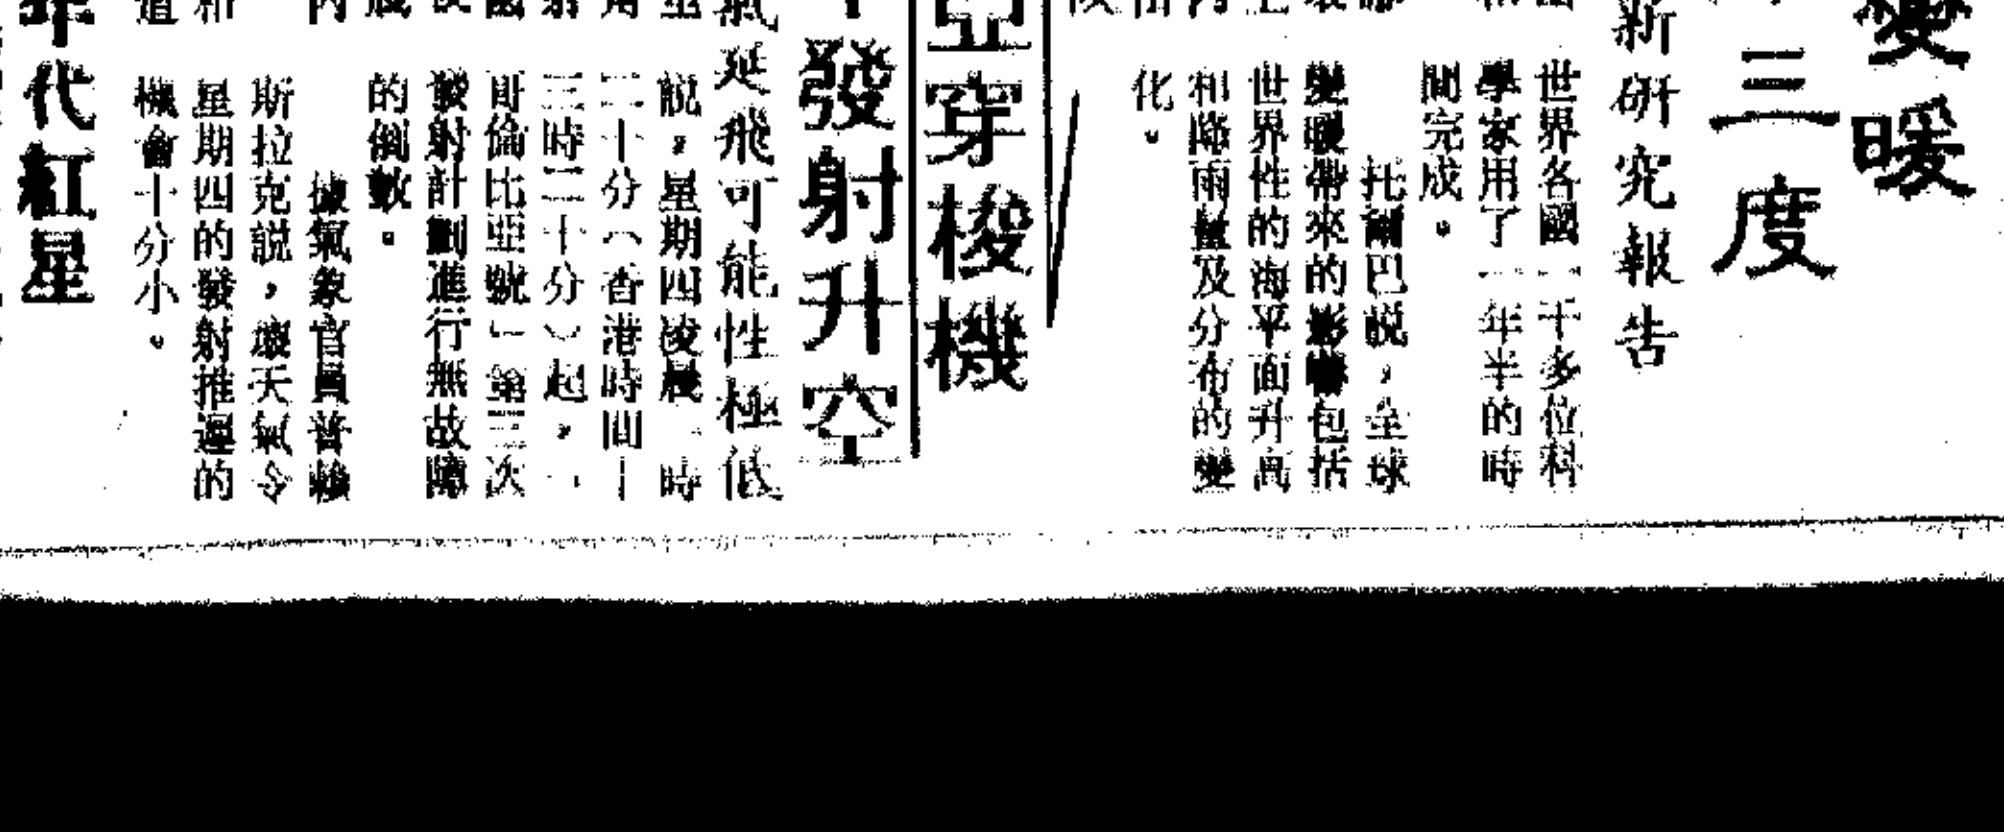 變暖
三度
新研究報告
世界各國一千多位科
學家用了一年半的時
間完成。
托爾巴說，全球
變暖帶來的影響包括
世界性的海平面升高
和降雨量及分布的變
化。
亞穿梭機
發射升空
氣延飛可能性極低
說，星期四凌晨一時
二十分（香港時間十
三時二十分）起，一
哥倫比亞號」第三次
發射計劃進行無故障
的倒數。
據氣象官員普賴
斯拉克說，壞天氣令
星期四的發射推遲的
機會十分小。
年代紅星